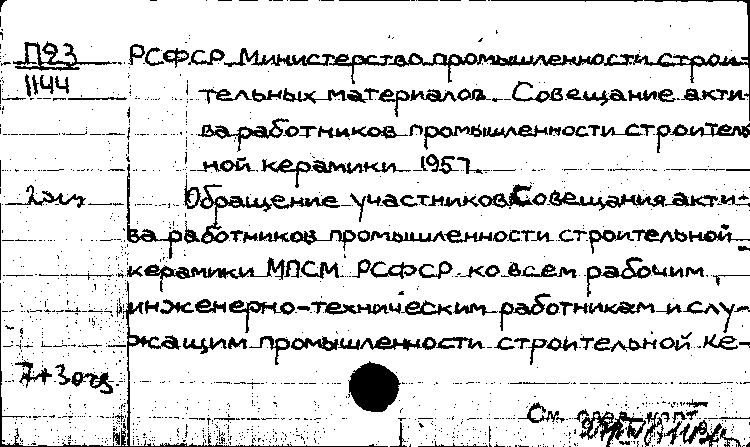 П23
1144
РСФСР. Министерство промышленности строи-
тельных материалов. Совещание акти-
ва работников промышленности строитель
ной керамики 1957.
2 экз
Обращение участников Совещания акти-
ва работников промышленности строительной
керамики МПСМ РСФСР ко всем рабочим,
инженерно-техническим работникам и слу-
жащим промышленности строительной ке-
См.